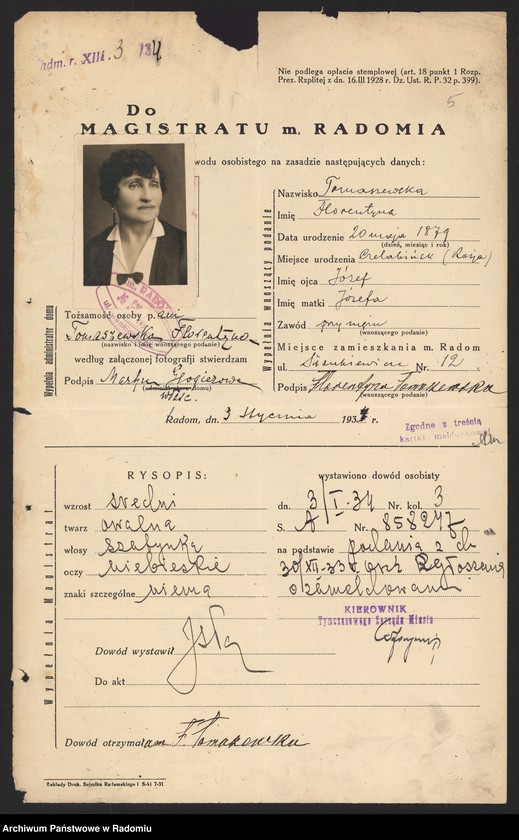 adm. r. XIII. 3 /34
Nie podlega opłacie stemplowej (art. 18 punkt 1 Rozp.
Prez. Rzplitej z dn. 16.III 1928 r. Dz. Ust. R. P. 32 p. 399).
5
Do
MAGISTRATU m. RADOMIA
wodu osobistego na zasadzie następujących danych:
Wypełnia administrator domu
Tożsamość osoby p. ani
Tomaszewska Florentyna
(nazwisko i imię wnoszącego podanie)
według załączonej fotografii stwierdzam
Podpis
(administratora domu)
Wypełnia wnoszący podanie
Nazwisko Tomaszewska
Imię Florentyna
Data urodzenie 20 maja 1879
(dzień, miesiąc i rok)
Miejsce urodzenia Czelabińsk (Rosja)
Imię ojca Józef
Imię matki Józefa
Zawód przy mężu
(wnoszącego podanie)
Miejsce zamieszkania m. Radom
ul. Sienkiewicza Nr. 12
Podpis Florentyna Tomaszewska
(wnoszącego podanie)
Radom, dn. 3 Stycznia 1934 r.
Zgodne z treścią
kartki meldunkowej
Wypełnia Magistrat
RYSOPIS:
wzrost średni
twarz owalna
włosy szatynka
oczy niebieskie
znaki szczególne niema
wystawiono dowód osobisty
dn. 3/I-34 Nr. kol. 3
S. A Nr. 858247
na podstawie podania z dn
30/XII-33
o zameldowaniu
KIEROWNIK
Tymczasowego Zarządu Miasta
Dowód wystawił
Do akt
Dowód otrzymałam F. Tomaszewska
Zakłady Druk. Sejmiku Radomskiego i S-ki 7-31
Archiwum Państwowe w Radomiu